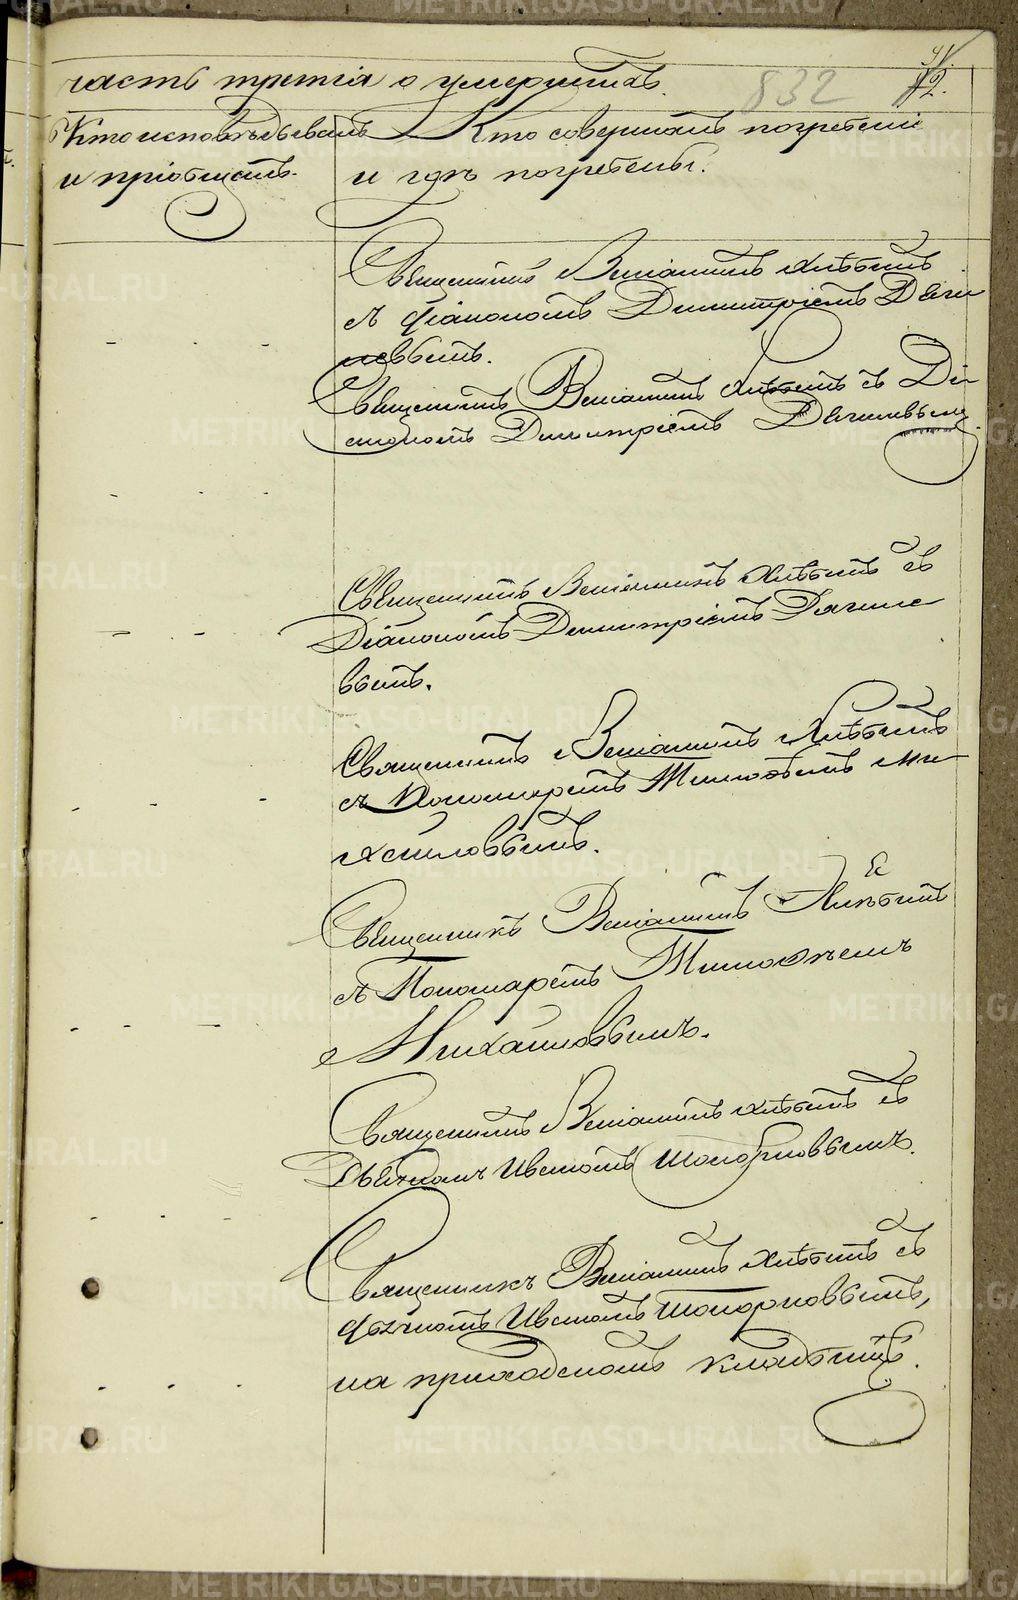 часть третія о умершихъ.
832
42.
Кто исповѣдывалъ
и пріобщалъ.
Кто совершалъ погребеніе
и гдѣ погребены.
Священникъ Веніаминъ Хлѣбинъ
съ діакономъ Димитріемъ Дягилевымъ.
Священникъ Веніаминъ Хлѣбинъ съ Ді-
акономъ Димитріемъ Дягилевымъ
Священникъ Веніаминъ Хлѣбинъ съ
Діакономъ Димитріемъ Дягиле
вымъ.
Священникъ Веніаминъ Хлѣбинъ
съ Пономаремъ Тимофѣемъ Ми
хайловымъ.
Священникъ Веніаминъ Хлѣбинъ
съ Пономаремъ Тимофѣемъ
Михайловымъ.
Священникъ Веніаминъ Хлѣбинъ съ
Дьячкомъ Иваномъ Топорковымъ.
Священникъ Веніаминъ Хлѣбинъ съ
дьячкомъ Иваномъ Топорковымъ,
на приходскомъ кладбищѣ.
METRIKI.GASO-URAL.RU